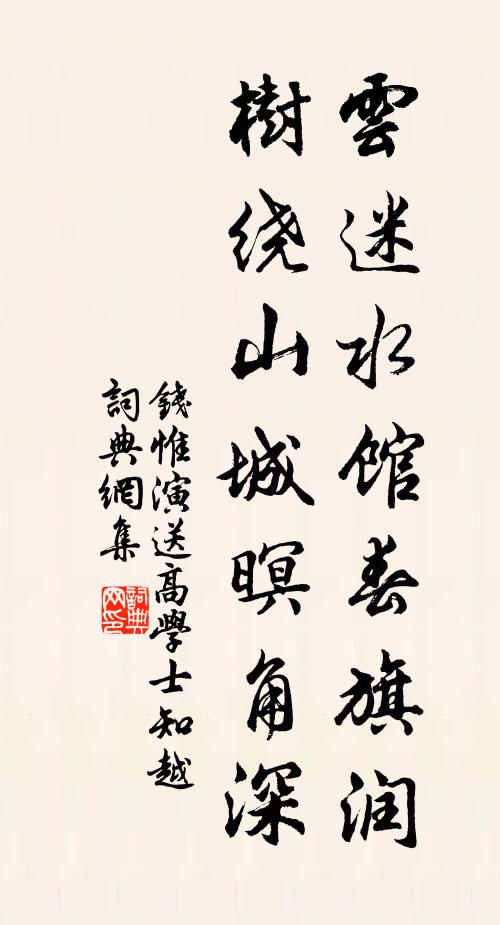 雲迷水館春旗润
樹绕山城暝角深
錢惟演送高學士知越
詞典網集
詞典网印